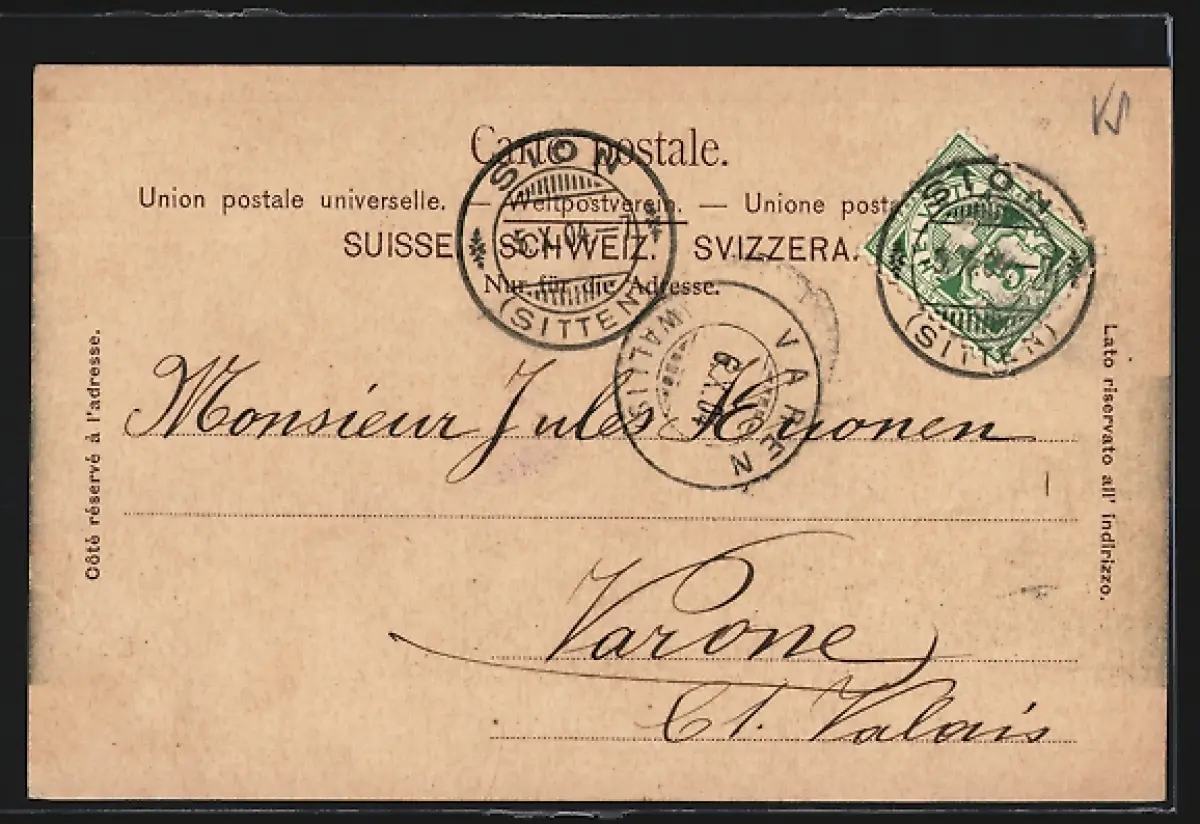 Carte postale.
Union postale universelle. — Weltpostverein. — Unione posta
SUISSE. SCHWEIZ. SVIZZERA.
Nur für die Adresse.
SION
5.X.04.–7
(SITTEN)
SION
(SITTEN)
HELVETIA
5
VAREN
6.X.04
(WALLIS)
Côté réservé à l'adresse.
Lato riservato all' indirizzo.
Monsieur Jules Kuonen
Varone
Ct. Valais
VS